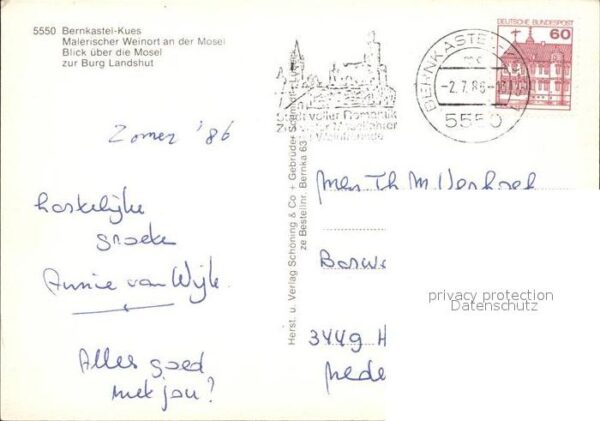 5550 Bernkastel-Kues
Malerischer Weinort an der Mosel
Blick über die Mosel
zur Burg Landshut
Zomer '86
hartelijke
groeten
Annie van Wijk.
Alles goed
met jou?
Herst. u. Verlag Schöning & Co + Gebrüder
ze Bestellnr. Bernka 63
voller Romantik
BERNKASTEL-
-2.7.86-
5550
DEUTSCHE BUNDESPOST
60
Th M
3449 H
Nede
privacy protection
Datenschutz